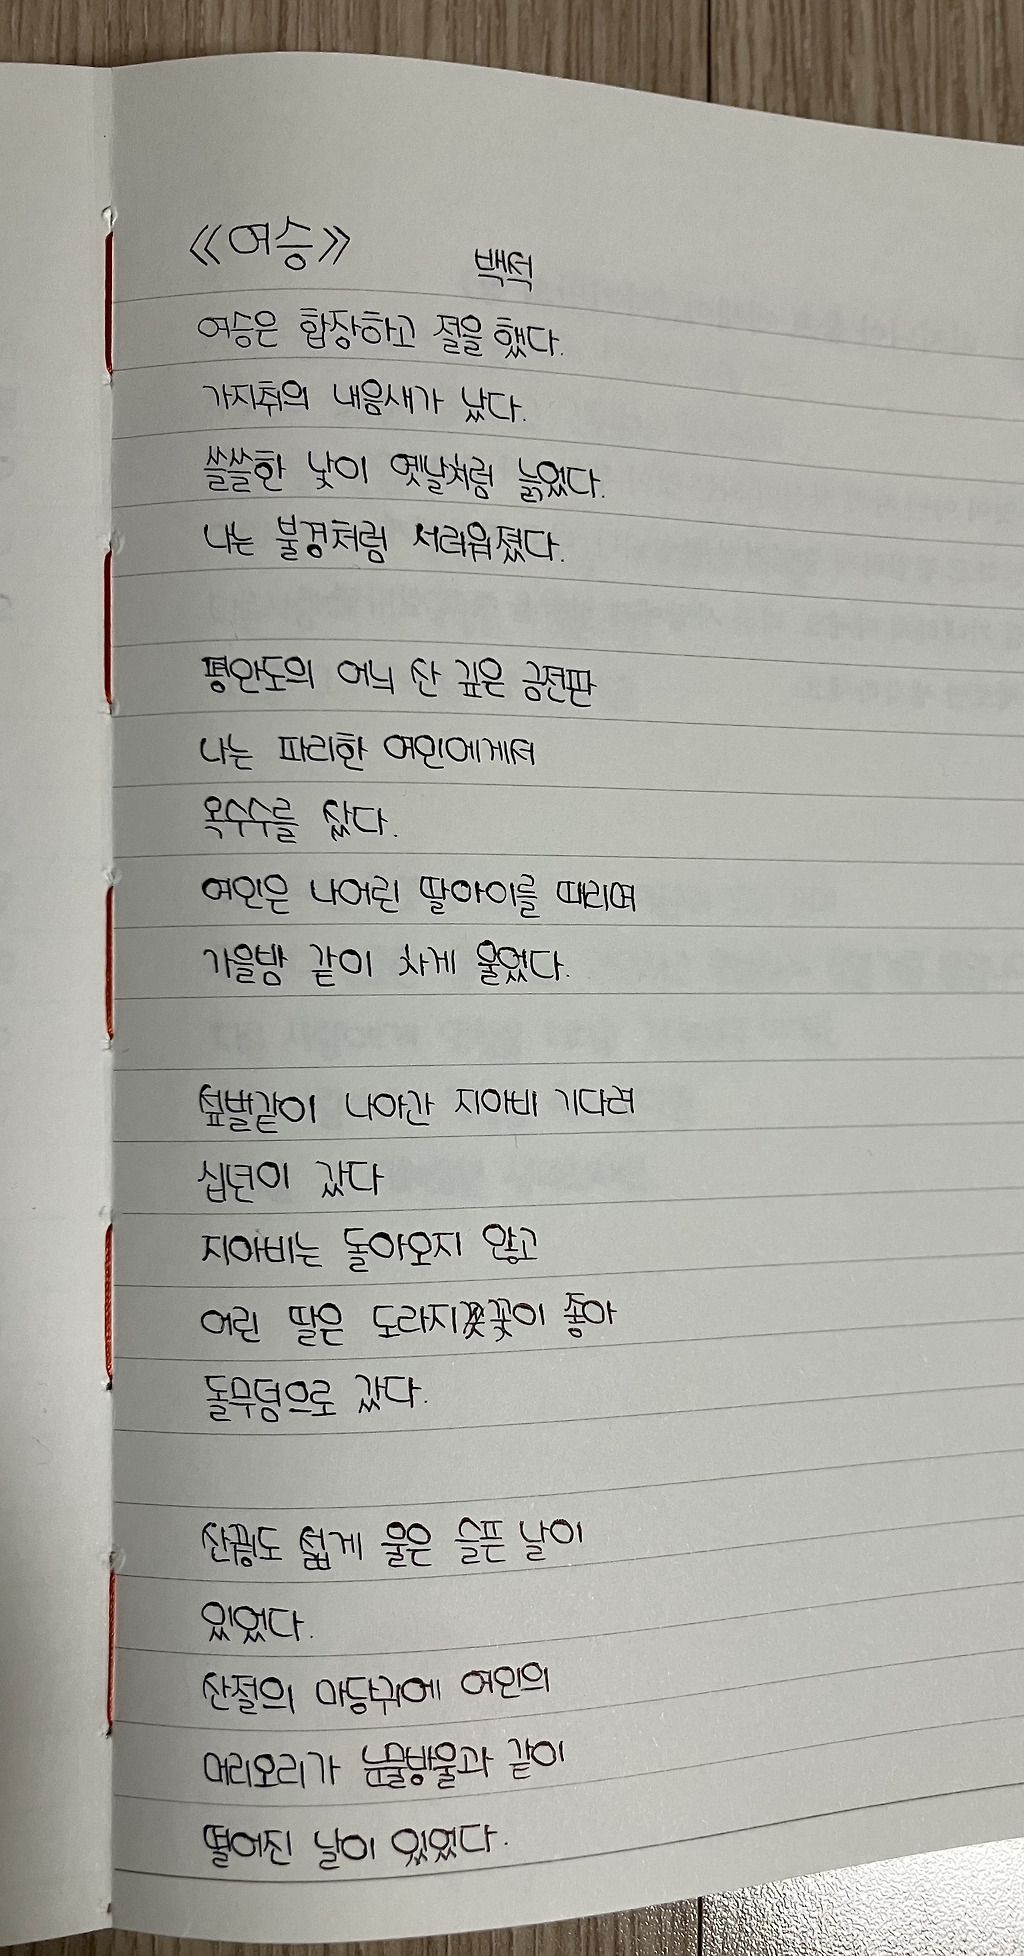 《여승》 백석
여승은 합장하고 절을 했다.
가지취의 내음새가 났다.
쓸쓸한 낯이 옛날처럼 늙었다.
나는 불경처럼 서러워졌다.
평안도의 어늬 산 깊은 금전판
나는 파리한 여인에게서
옥수수를 샀다.
여인은 나어린 딸아이를 때리며
가을밤 같이 차게 울었다.
섶벌같이 나아간 지아비 기다려
십년이 갔다
지아비는 돌아오지 않고
어린 딸은 도라지꽃이 좋아
돌무덤으로 갔다.
산꿩도 섧게 울은 슬픈 날이
있었다.
산절의 마당귀에 여인의
머리오리가 눈물방울과 같이
떨어진 날이 있었다.